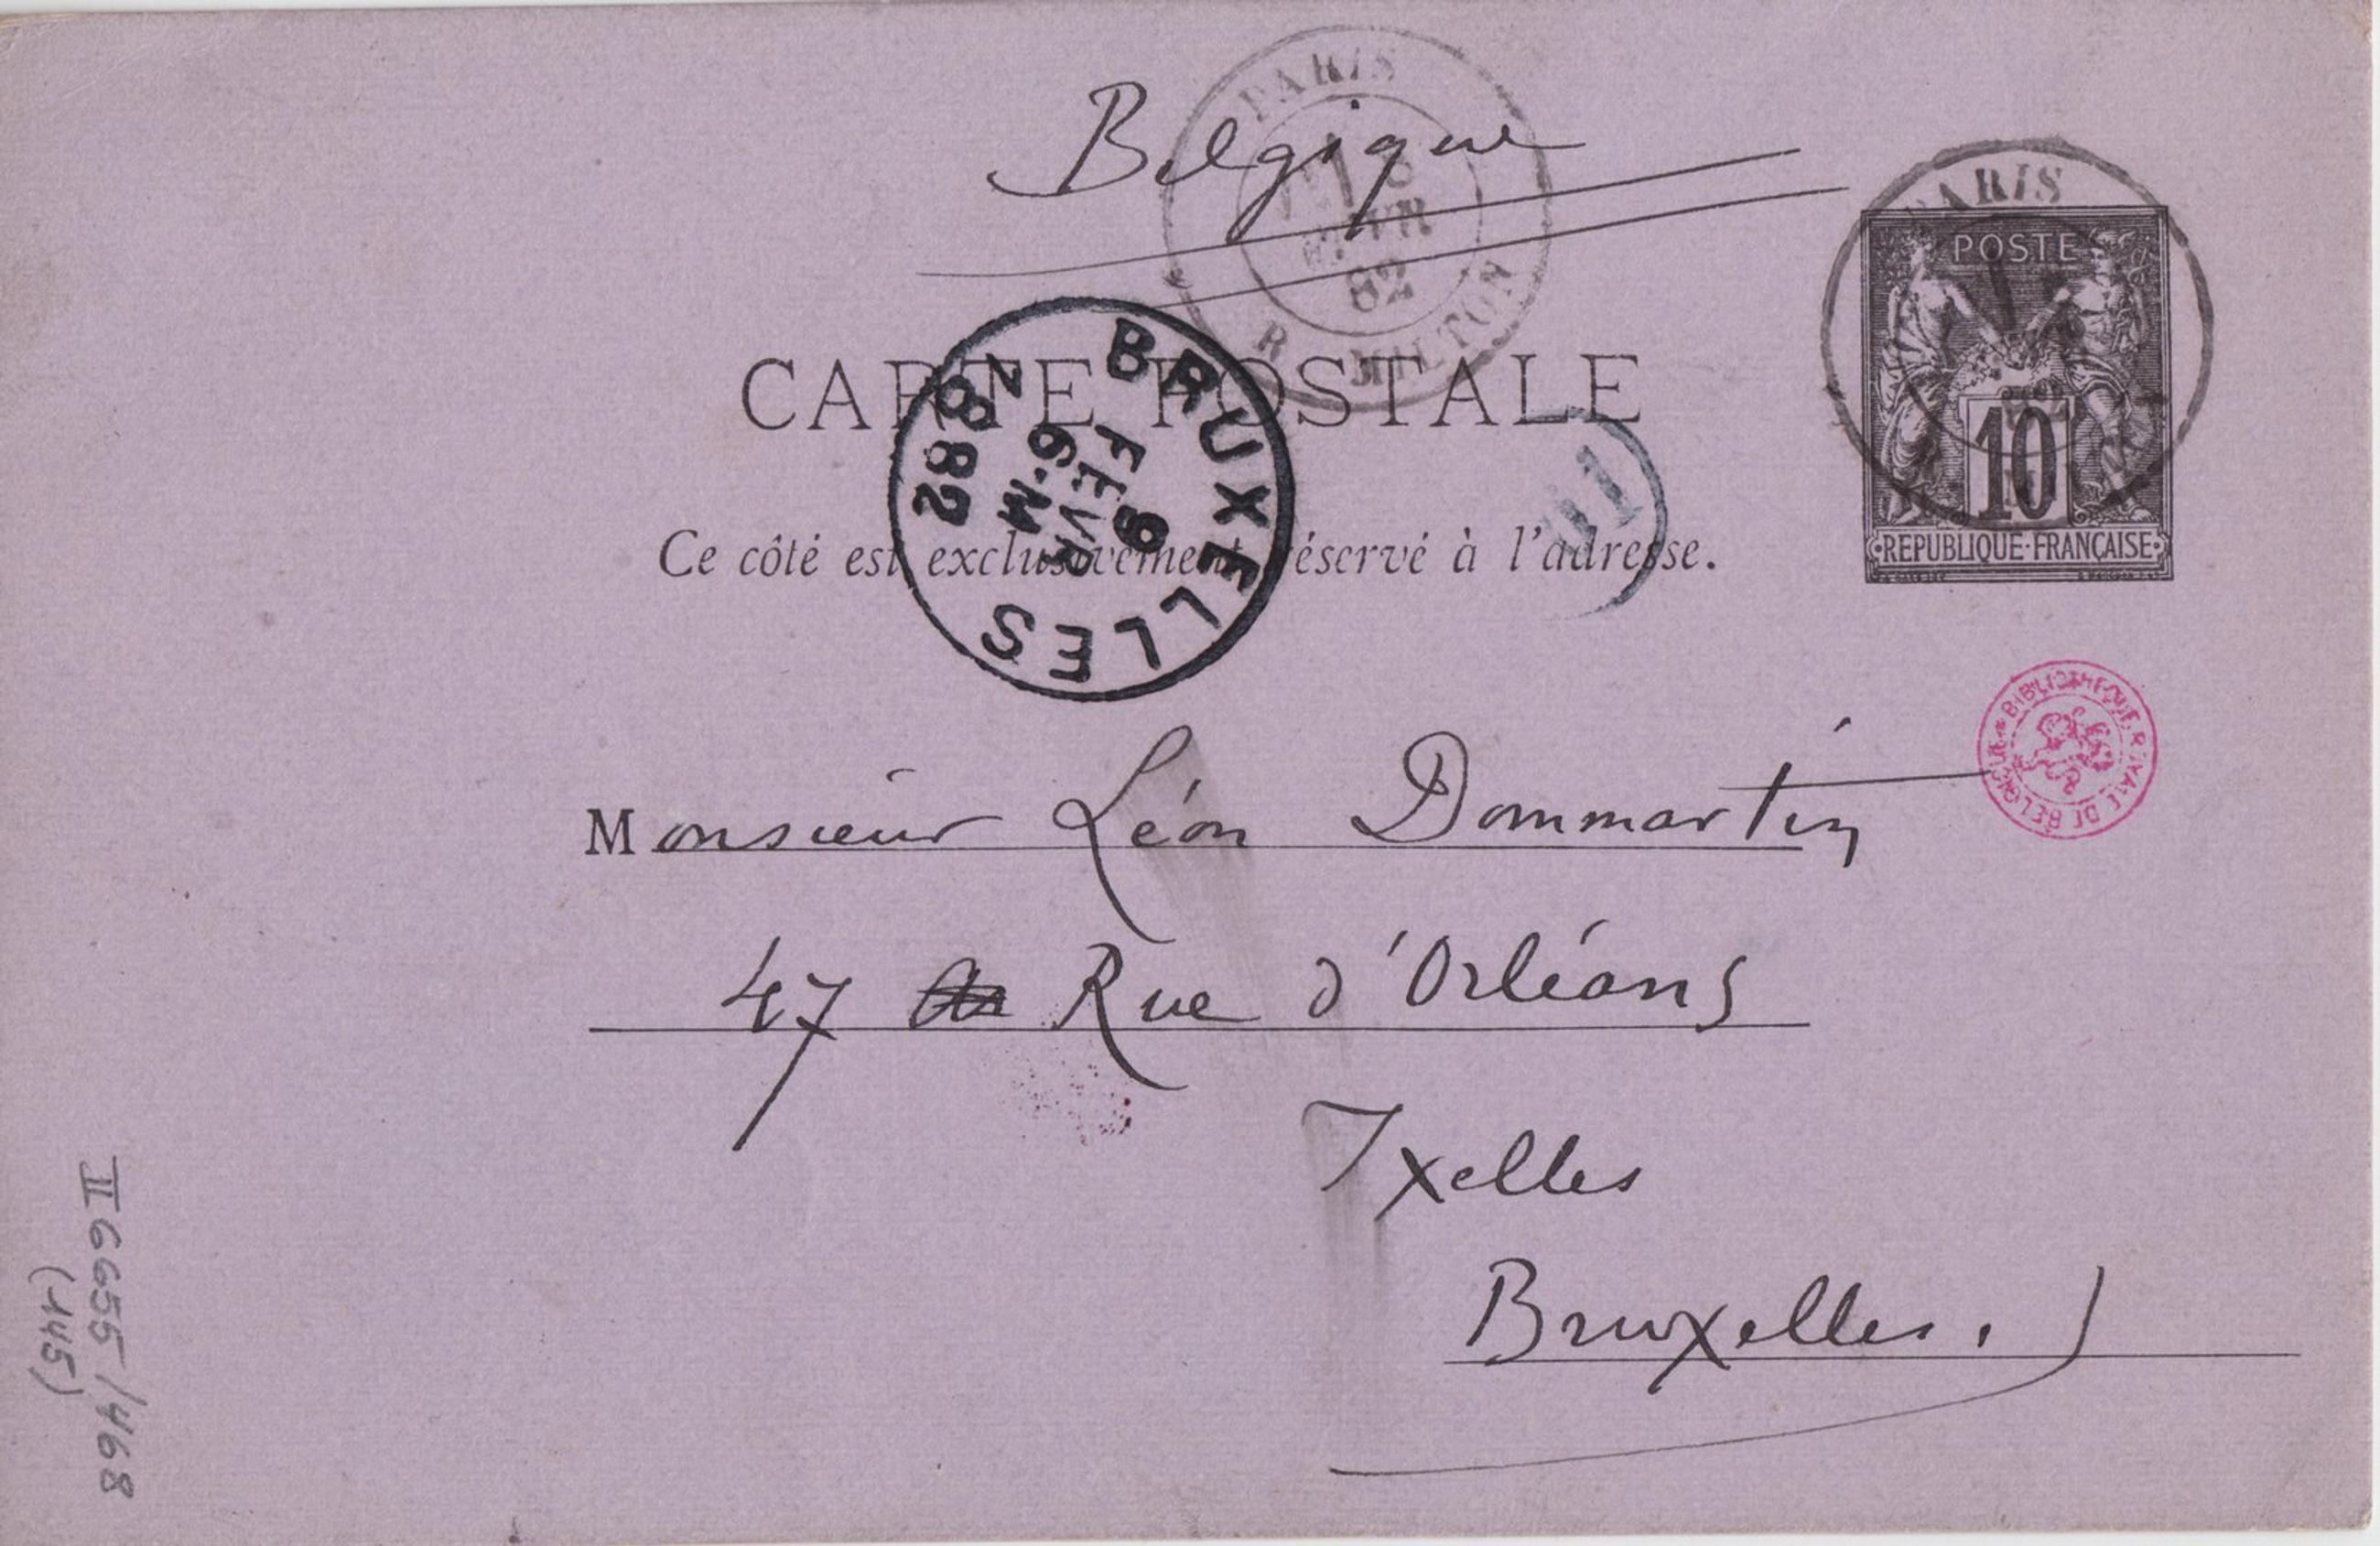 Belgique
PARIS
8
FEVR
82
R. MILTON
PARIS
POSTE
10
REPUBLIQUE·FRANÇAISE
CARTE POSTALE
Ce côté est exclusivement réservé à l'adresse.
BRUXELLES
9
FEVR
6-M
1882
BIBLIOTHEQUE ROYALE DE BELGIQUE
Monsieur Léon Dommartin
47 Rue d'Orléans
Ixelles
Bruxelles.
II 6655/468
(145)